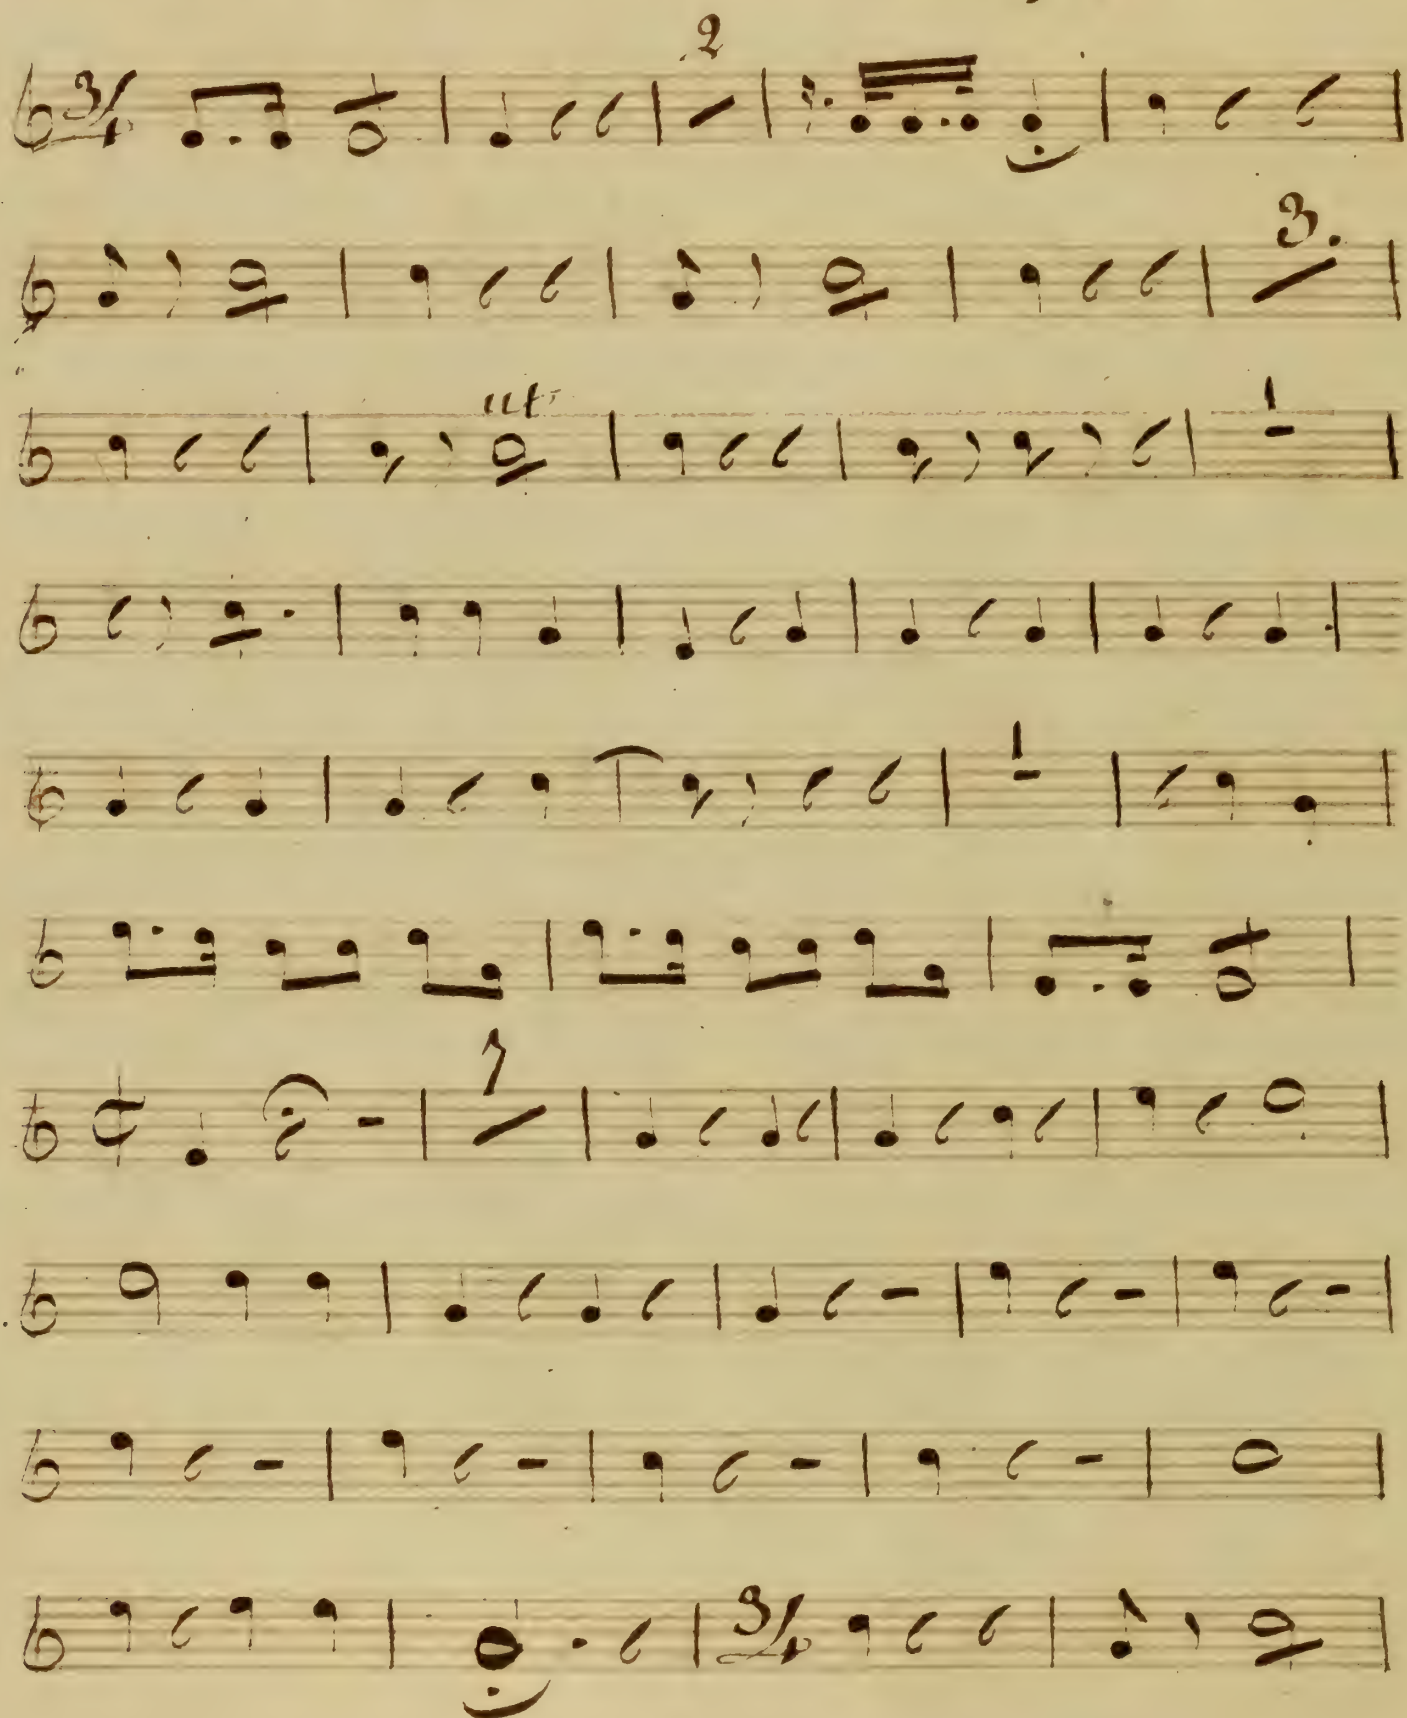 2
3/4
3.
ut
1
1
7
3/4